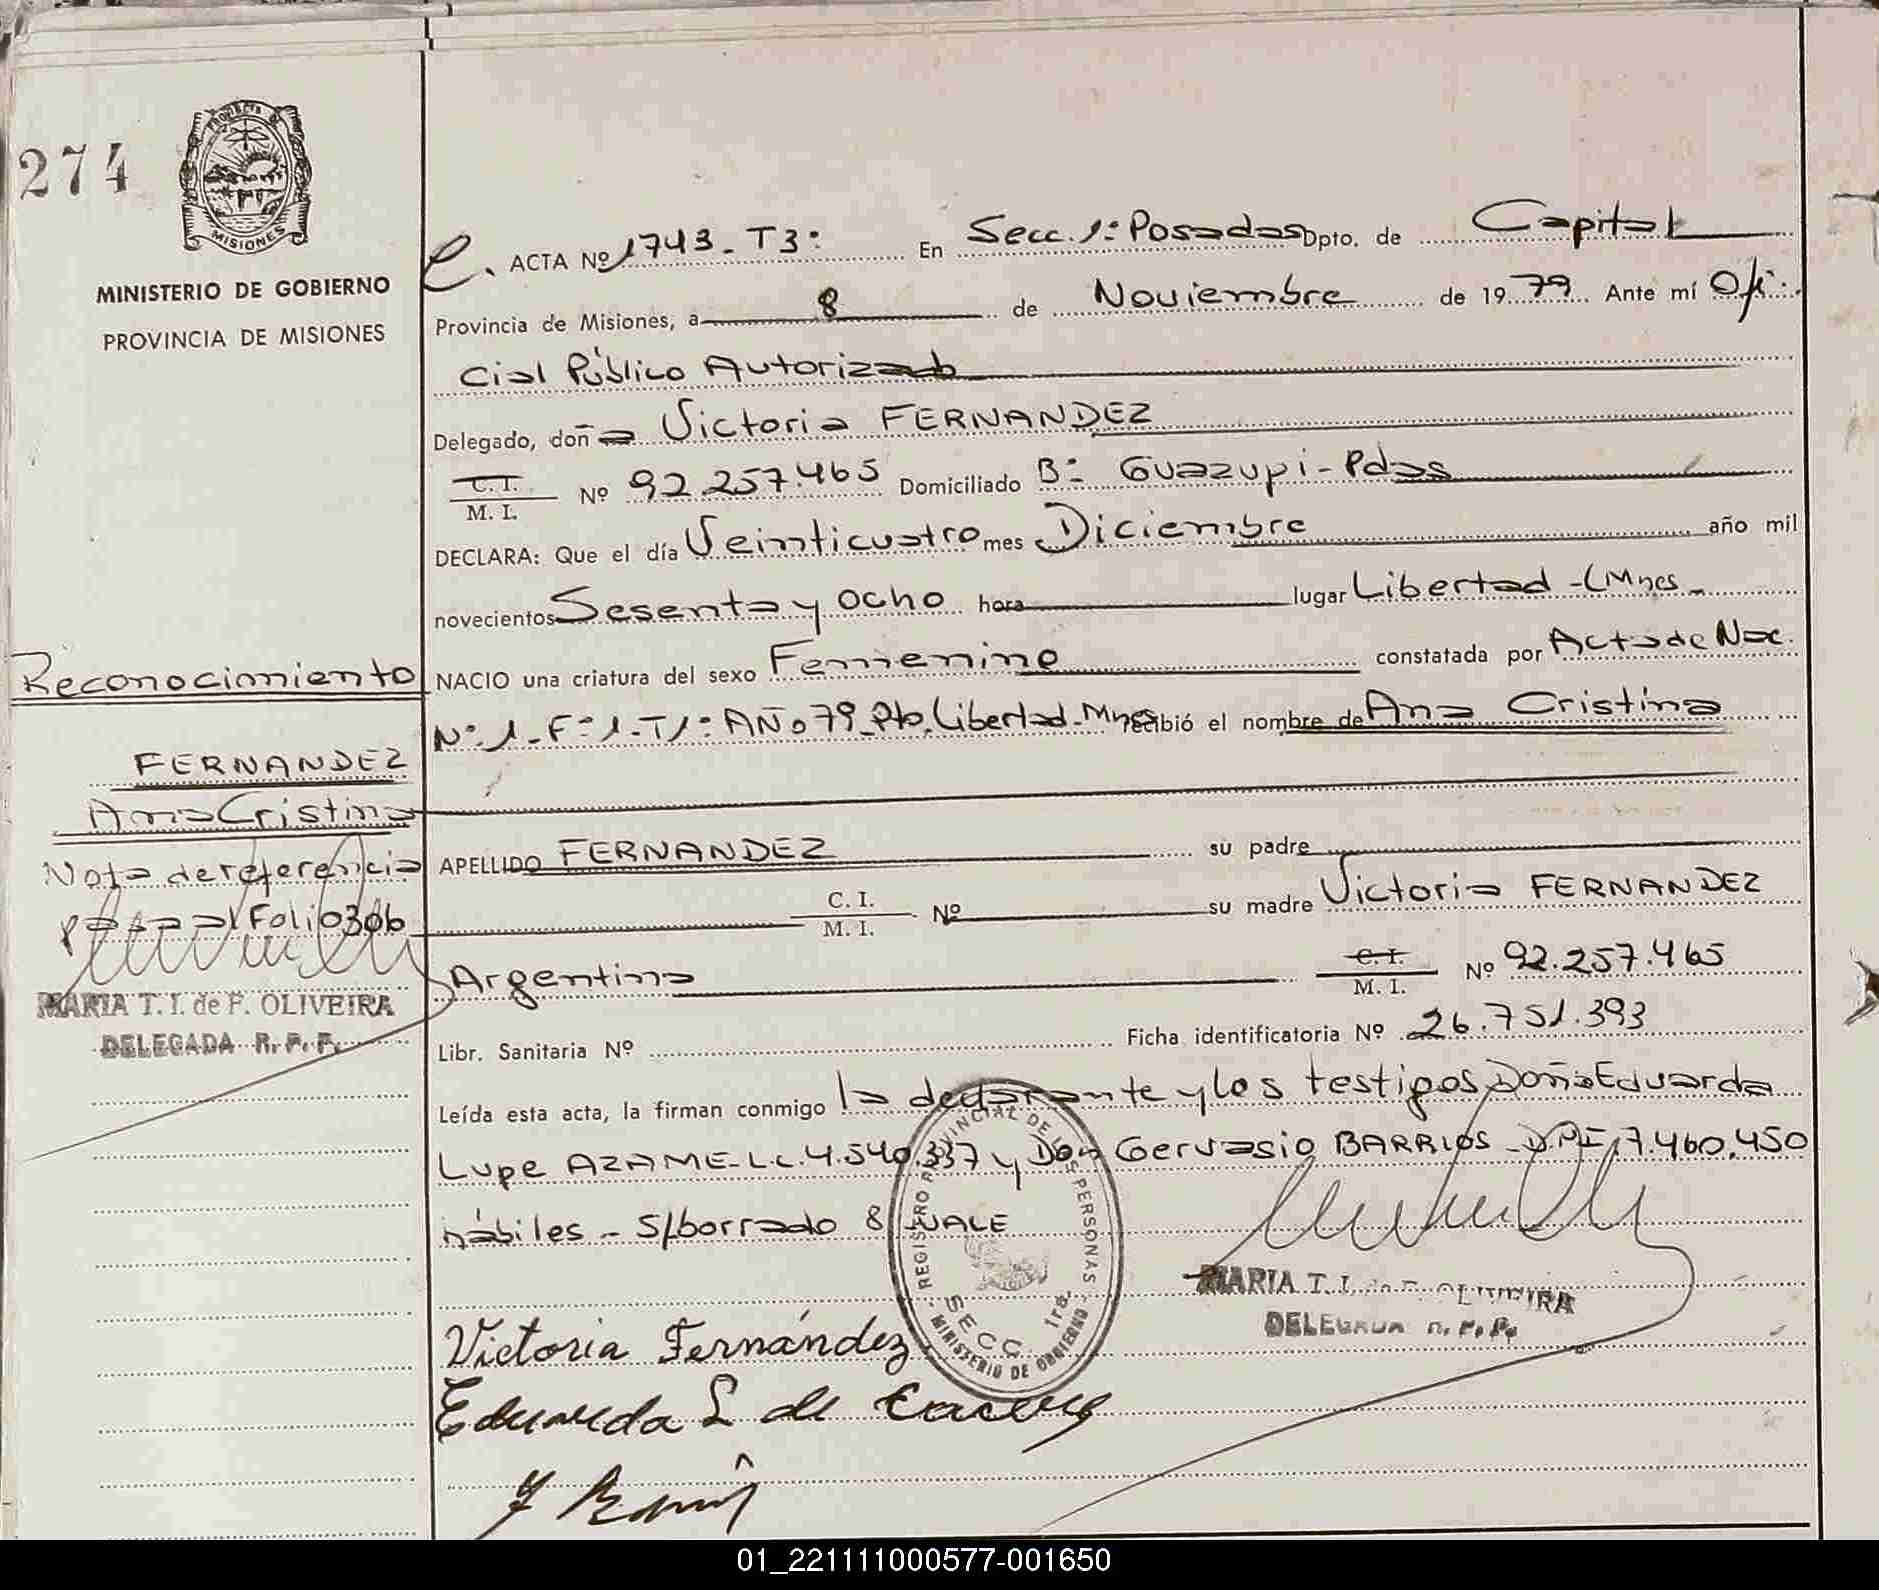 274
PROVINCIA DE
MISIONES
MINISTERIO DE GOBIERNO
PROVINCIA DE MISIONES
Reconocimiento
FERNANDEZ
Ana Cristina
Nota de referencia
pasa al Folio 306
MARIA T. I. de F. OLIVEIRA
DELEGADA R. P. P.
ACTA Nº 1743 - T3º En Secc. 1º Posadas Dpto. de Capital
Provincia de Misiones, a 8 de Noviembre de 1979 Ante mí Ofi-
cial Público Autorizado
Delegado, doña Victoria FERNANDEZ
C. I.
M. I. Nº 92.257.465 Domiciliado Bº Guazupi - Pdas
DECLARA: Que el día Veinticuatro mes Diciembre año mil
novecientos Sesenta y ocho hora lugar Libertad - (Mnes -
NACIO una criatura del sexo Femenino constatada por Acta de Nac.
Nº 1 - Fº 1 - T1º AÑO 79 - Pto. Libertad - Mnes recibió el nombre de Ana Cristina
APELLIDO FERNANDEZ su padre
C. I.
M. I. Nº su madre Victoria FERNANDEZ
Argentina C. I.
M. I. Nº 92.257.465
Libr. Sanitaria Nº Ficha identificatoria Nº 26.751.393
Leída esta acta, la firman conmigo la declarante y los testigos Doña Eduarda
Lupe AZAME - L.C. 4.540.337 y Don Gervasio BARRIOS - D.M.I. 7.460.450
hábiles - S/borrado 8 VALE
REGISTRO PROVINCIAL DE LAS PERSONAS
SECC. 1ra.
MINISTERIO DE GOBIERNO
MARIA T. I. de F. OLIVEIRA
DELEGADA R. P. P.
Victoria Fernández
Eduarda L de
01_221111000577-001650